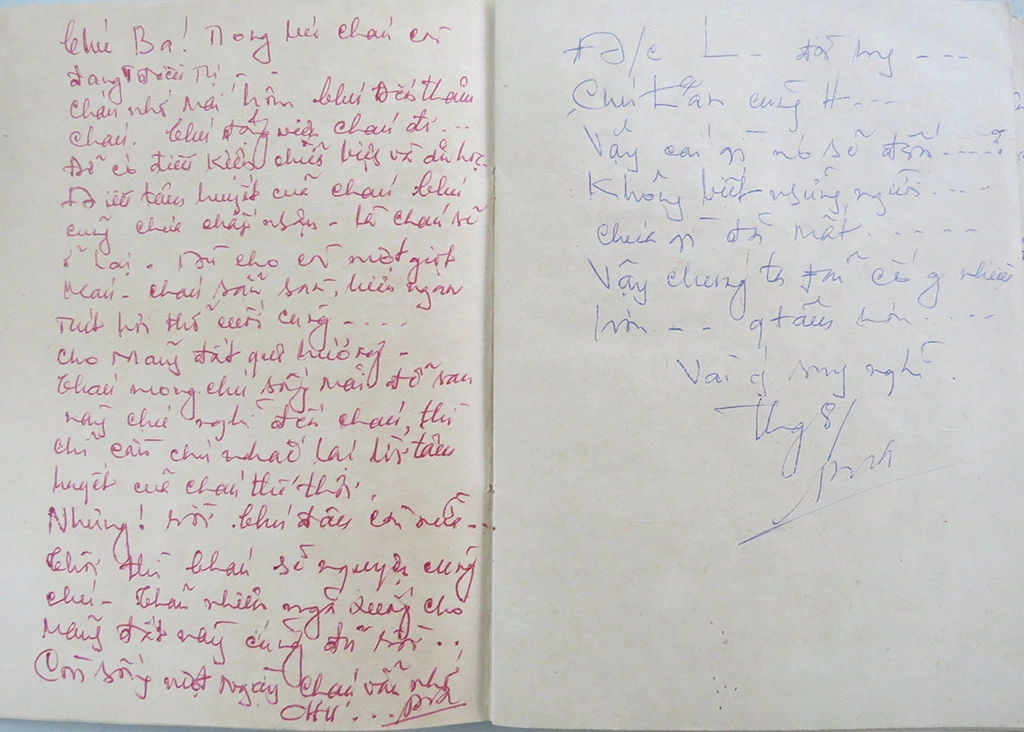 Chú Ba! Trong khi cháu còn
đang điều trị . .
cháu nhớ mãi hôm chú đến thăm
cháu. Chú động viên cháu đi ...
Để có điều kiện chữa bệnh và đi học..
Điều tâm huyết của cháu chú
cũng chưa chấp nhận - là cháu sẽ
ở lại - Dù cho còn một giọt
máu - cháu sẵn sàn, hiên ngan
trút hơi thở cuối cùng - - - -
cho mãng đất quê hương -
Cháu mong chú sống mãi để sau
này chú nghĩ đến cháu, thì
chỉ cần chú nhắc lại lời tâm
huyết của cháu thế thôi.
Nhưng! rồi chú đâu còn nữa - ...
Thôi thì cháu sẽ nguyện cùng
chú - Thản nhiên ngã xuống cho
mãng đất này cũng đủ rồi . .
Còn sống một ngày cháu vẫn nhớ
chú . . .
Đ/c L - đã hy - - -
Chú Hân cũng H - - -
Vậy cái gì nó sẽ đến - - - - ?
Không biết những người - - - -
chưa gì đã mất . - - - - -
Vậy chúng ta phải cố g nhiều
hơn - - - q tâm hơn - - - -
Vài ý suy nghĩ .
Thg 8/